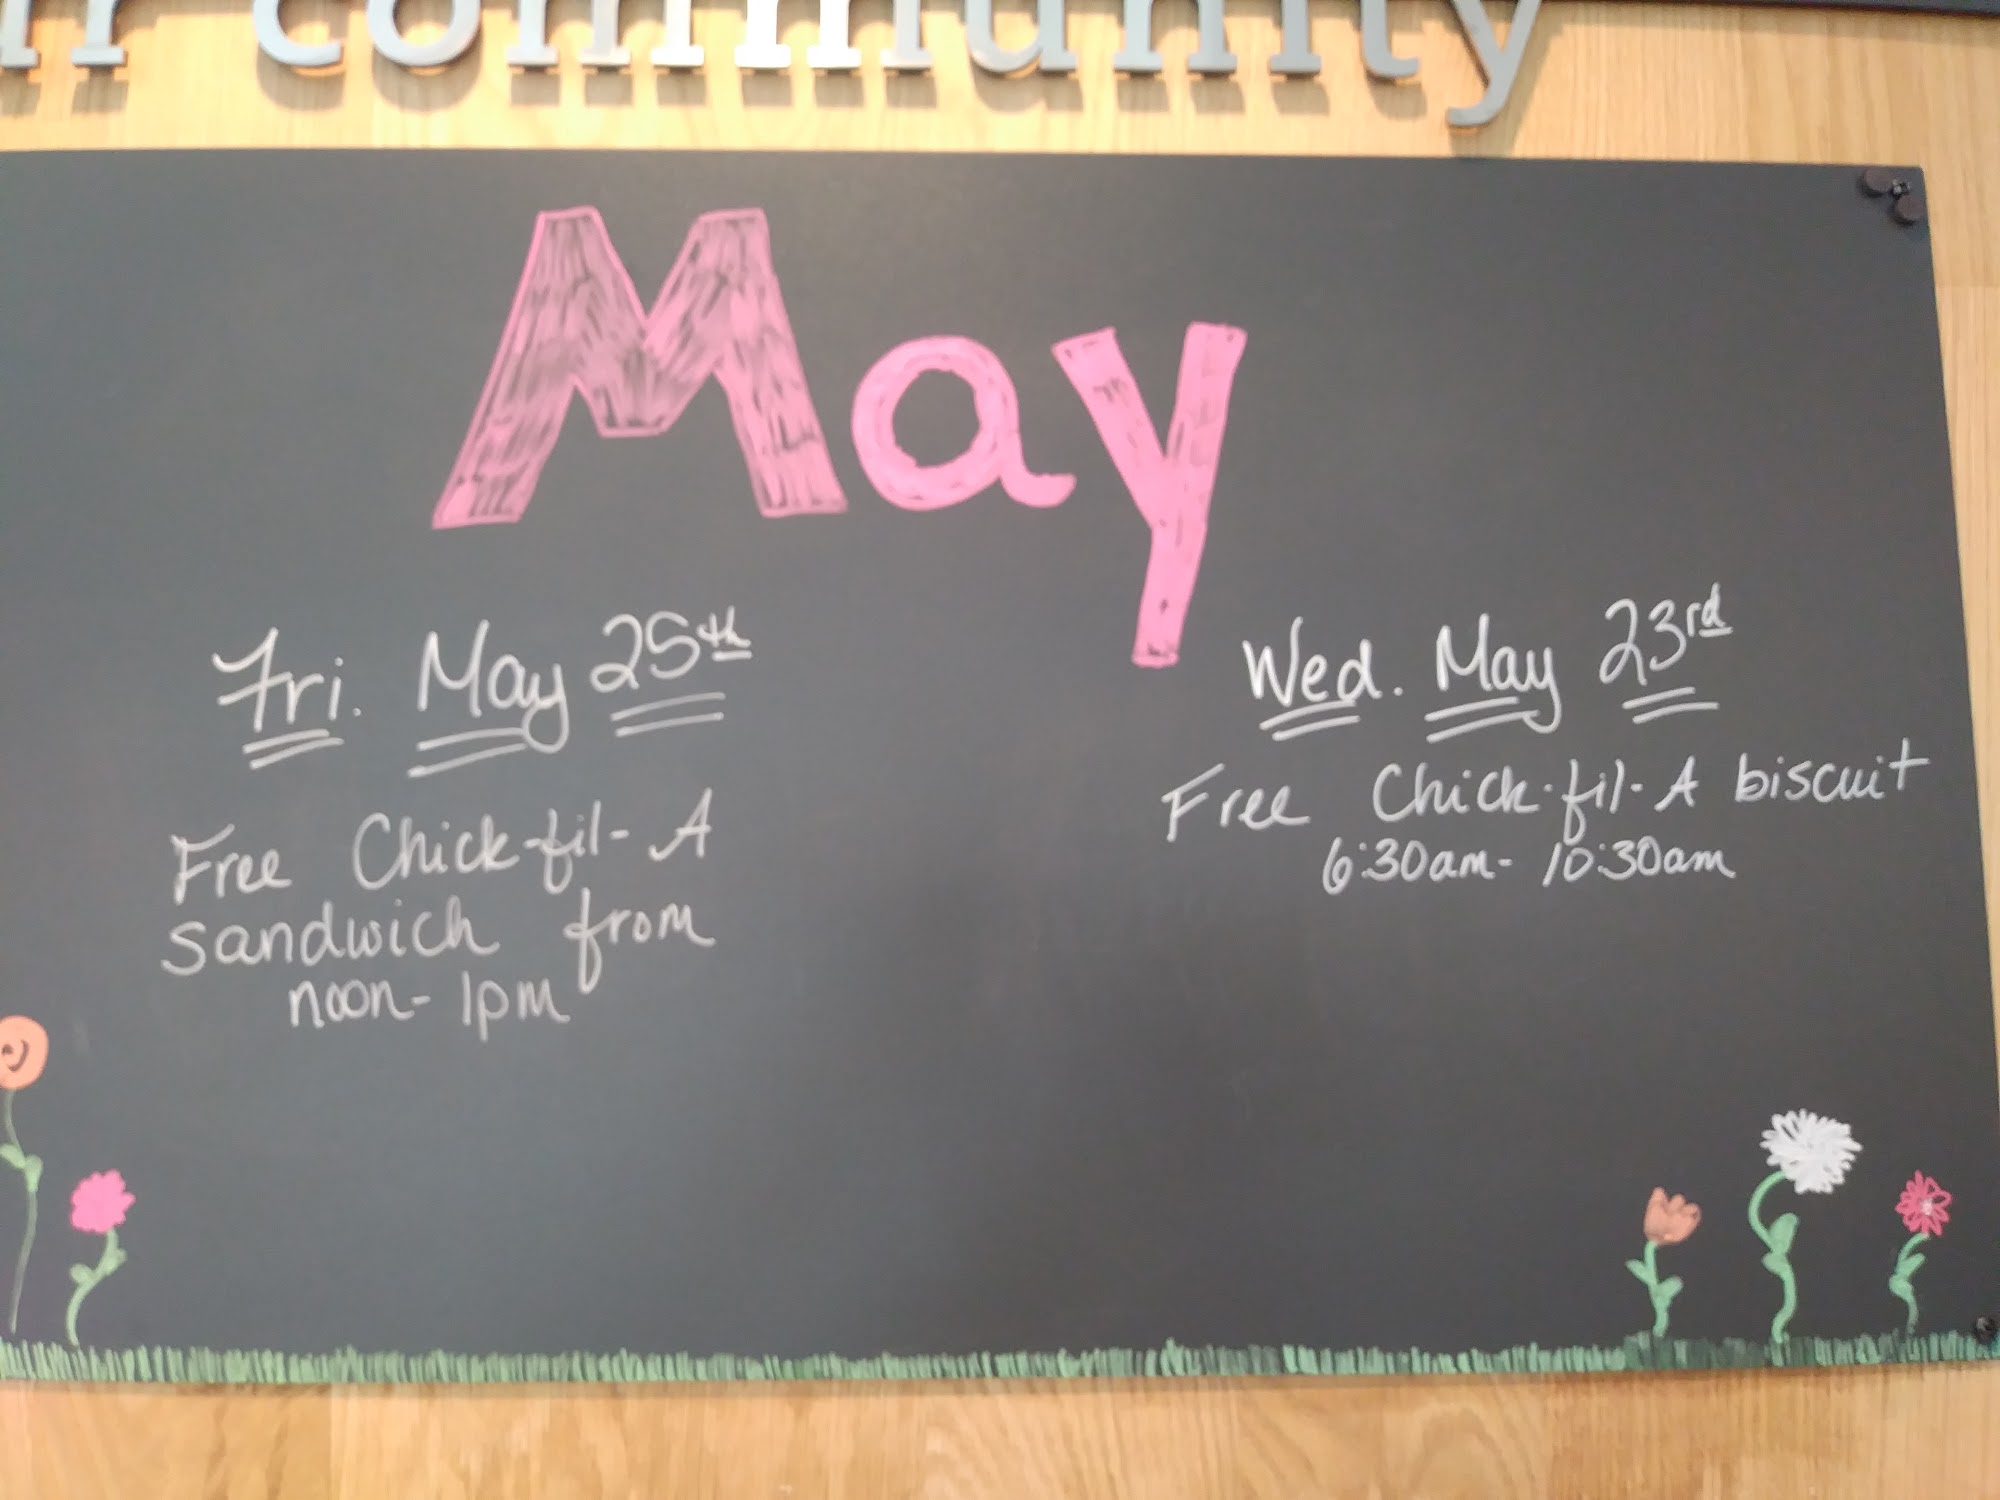 community
May
Fri. May 25th
Free Chick-fil-A
sandwich from
noon- 1pm
Wed. May 23rd
Free Chick-fil-A biscuit
6:30am- 10:30am